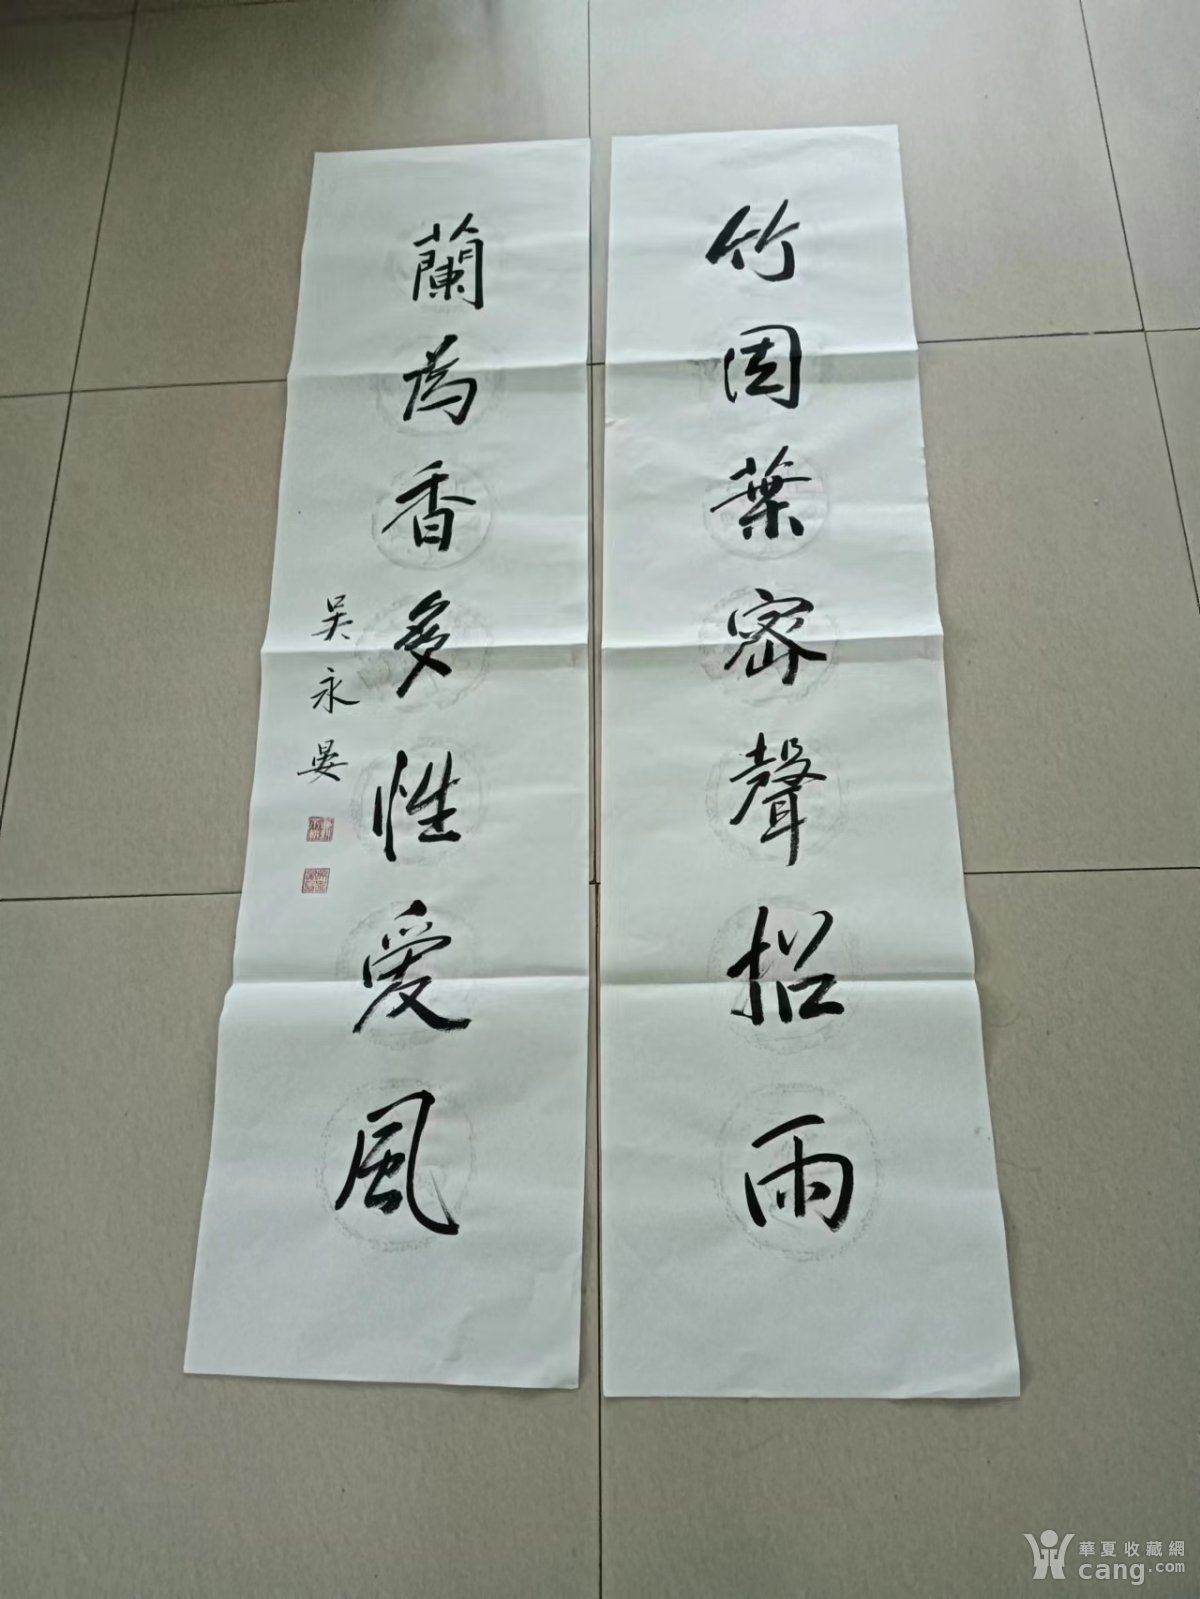 竹因葉密聲招雨
蘭為香多性愛風
吳永晏
華夏收藏網
cang.com